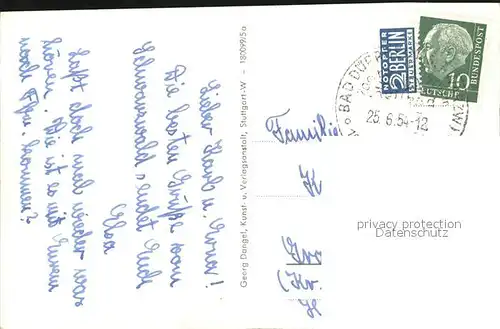 Lieber Karl u. Erna!
Die besten Grüße vom
Schwarzwald sendet Euch
Elsa
Laßt doch mal wieder was
hören. Wie ist es mit Eurem
nach kommen?
Georg Dangel, Kunst- u. Verlagsanstalt, Stuttgart-W - 18099/5a
NOTOPFER
2 BERLIN
STEUERMARKE
10
DEUTSCHE
BUNDESPOST
BAD DÜR
25.6.54-12
Familie
K
(Kr.
privacy protection
Datenschutz